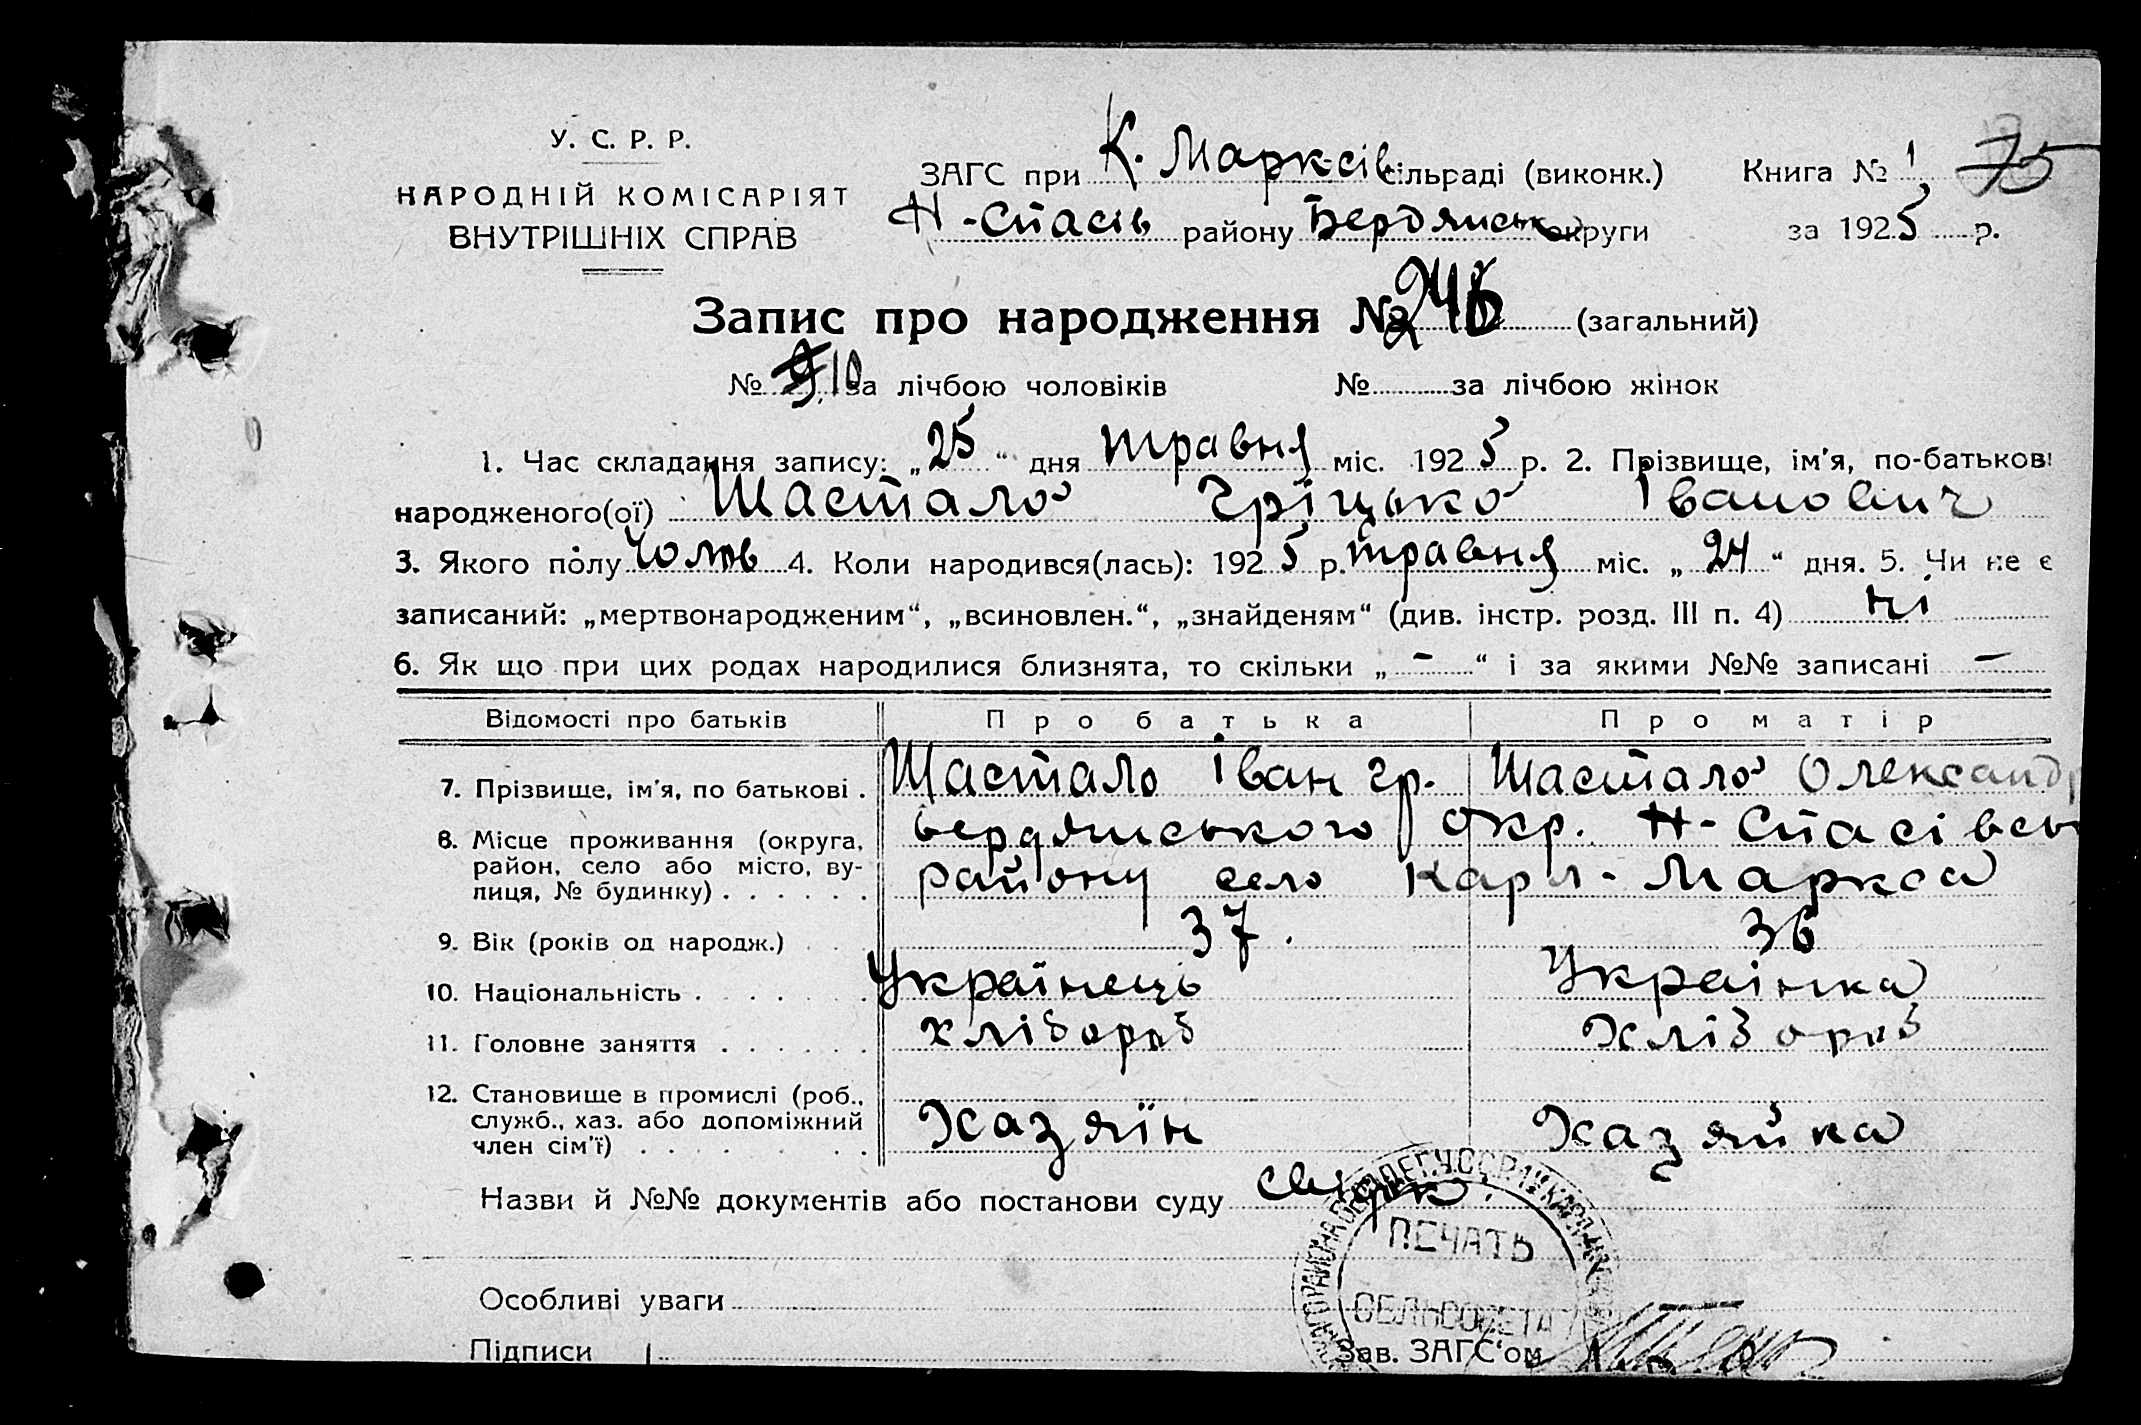 У. С. Р. Р.
НАРОДНІЙ КОМІСАРІЯТ
ВНУТРІШНІХ СПРАВ
ЗАГС при К. Марксів сільраді (виконк.)
Н-Спасів району Бердянськ округи
Книга № 1 75
за 1925 р.
Запис про народження № 246 (загальний)
№ 9 10 за лічбою чоловіків № за лічбою жінок
1. Час складання запису: „25“ дня травня міс. 1925 р. 2. Прізвище, ім'я, по-батькові
народженого(ої) Шастало Гріцько Іванович
3. Якого полу чолов 4. Коли народився(лась): 1925 р. травня міс. „24“ дня. 5. Чи не є
записаний: „мертвонародженим“, „всиновлен.“, „знайденям“ (див. інстр. розд. III п. 4) ні
6. Як що при цих родах народилися близнята, то скільки „-“ і за якими №№ записані —
Відомості про батьків Про батька Про матір
7. Прізвище, ім'я, по батькові . Шастало Іван гр. Шастало Олександр
8. Місце проживання (округа, район, село або місто, вулиця, № будинку) . . . . . .
Бердянського Окр. Н-Спасівськ
району село Карл-Маркса
9. Вік (років од народж.) 37. 36
10. Національність . Українець Українка
11. Головне заняття . хлібороб Хлібороб
12. Становище в промислі (роб., служб., хаз. або допоміжний член сім'ї) Хазяїн Хазяйка
Назви й №№ документів або постанови суду
ПЕЧАТЬ
СЕЛЬСОВЕТА
Особливі уваги
Підписи Зав. ЗАГС'ом